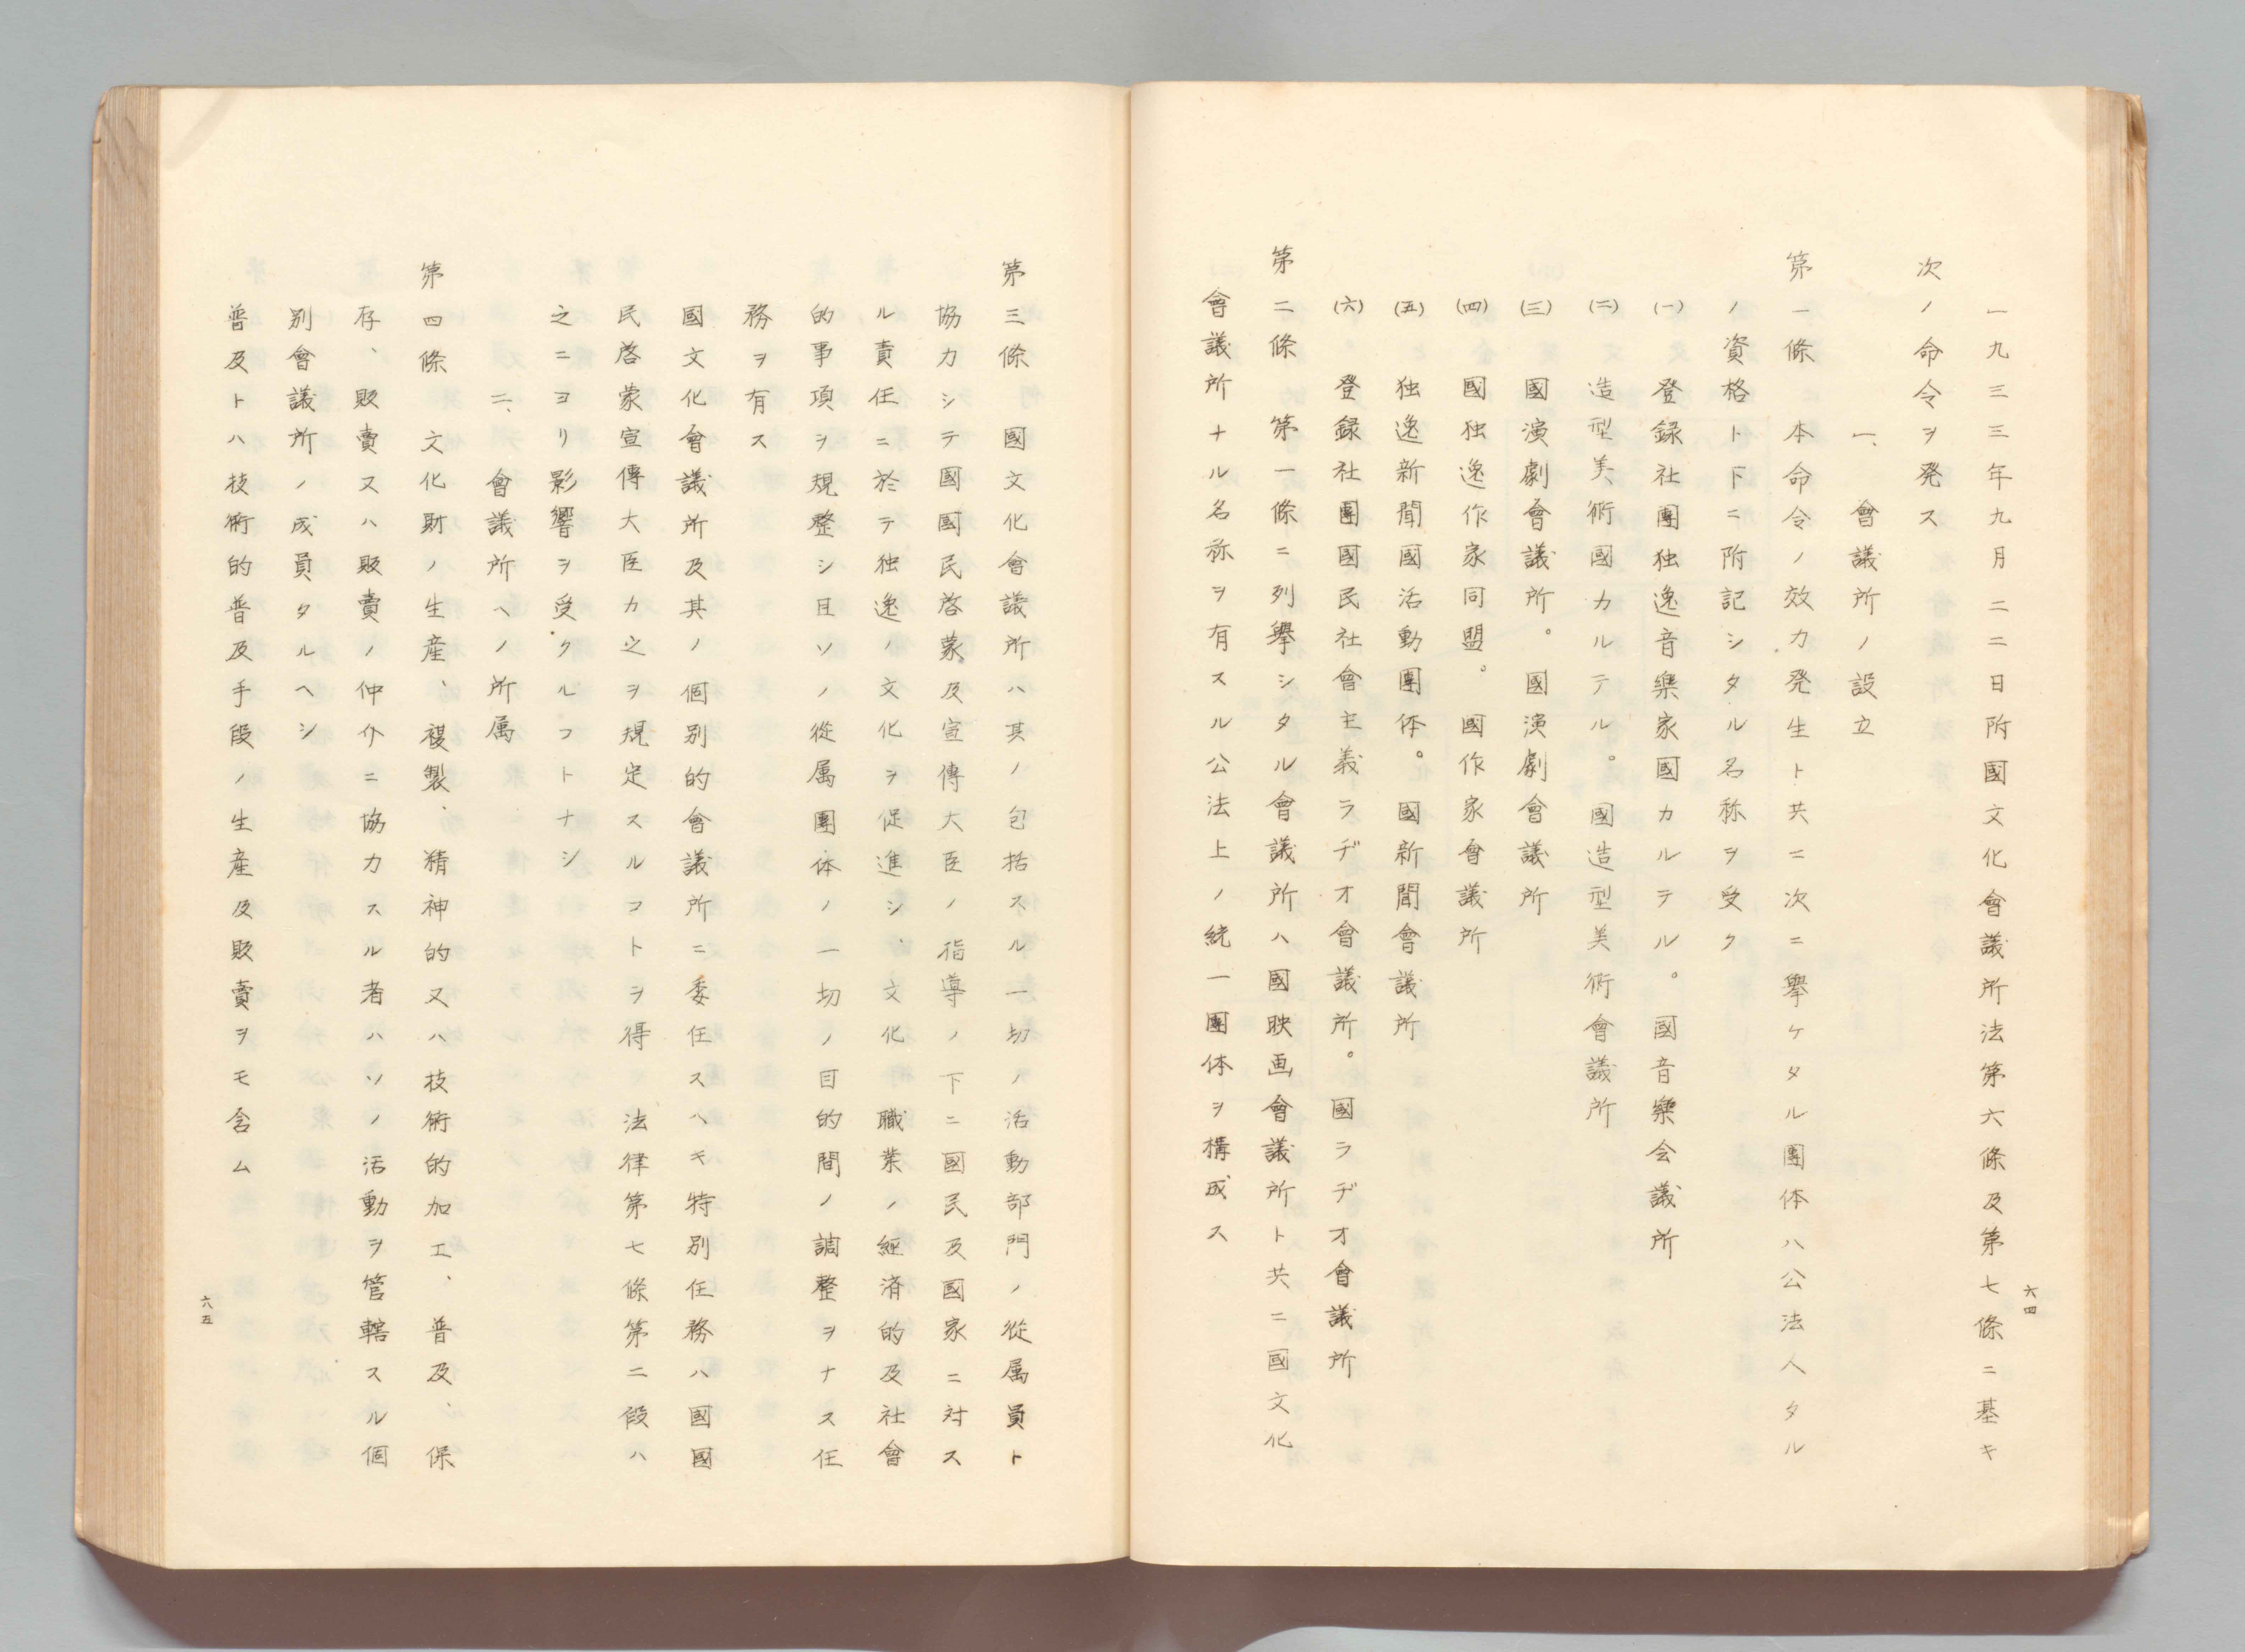 六四
一九三三年九月二二日附國文化會議所法第六條及第七條ニ基キ
次ノ命令ヲ発ス
一、會議所ノ設立
第一條　本命令ノ效力発生ト共ニ次ニ擧ケタル團体ハ公法人タル
ノ資格ト下ニ附記シタル名称ヲ受ク
(一)　登録社團独逸音樂家國カルテル。國音樂会議所
(二)　造型美術國カルテル。國造型美術會議所
(三)　國演劇會議所。國演劇會議所
(四)　國独逸作家同盟。國作家會議所
(五)　独逸新聞國活動團体。國新聞會議所
(六)　登録社團國民社會主義ラヂオ會議所。國ラヂオ會議所
第二條　第一條ニ列擧シタル會議所ハ國映画會議所ト共ニ國文化
會議所ナル名称ヲ有スル公法上ノ統一團体ヲ構成ス
第三條　國文化會議所ハ其ノ包括スル一切ノ活動部門ノ從属員ト
協力シテ國國民啓蒙及宣傳大臣ノ指導ノ下ニ國民及國家ニ対ス
ル責任ニ於テ独逸ノ文化ヲ促進シ、文化職業ノ経済的及社會
的事項ヲ規整シ且ソノ從属團体ノ一切ノ目的間ノ調整ヲナス任
務ヲ有ス
國文化會議所及其ノ個別的會議所ニ委任スヘキ特別任務ハ國國
民啓蒙宣傳大臣カ之ヲ規定スルコトヲ得　法律第七條第二段ハ
之ニヨリ影響ヲ受クルコトナシ
二、會議所ヘノ所属
第四條　文化財ノ生産、複製、精神的又ハ技術的加工、普及、保
存、販賣又ハ販賣ノ仲介ニ協力スル者ハソノ活動ヲ管轄スル個
別會議所ノ成員タルヘシ
普及トハ技術的普及手段ノ生産及販賣ヲモ含ム
六五